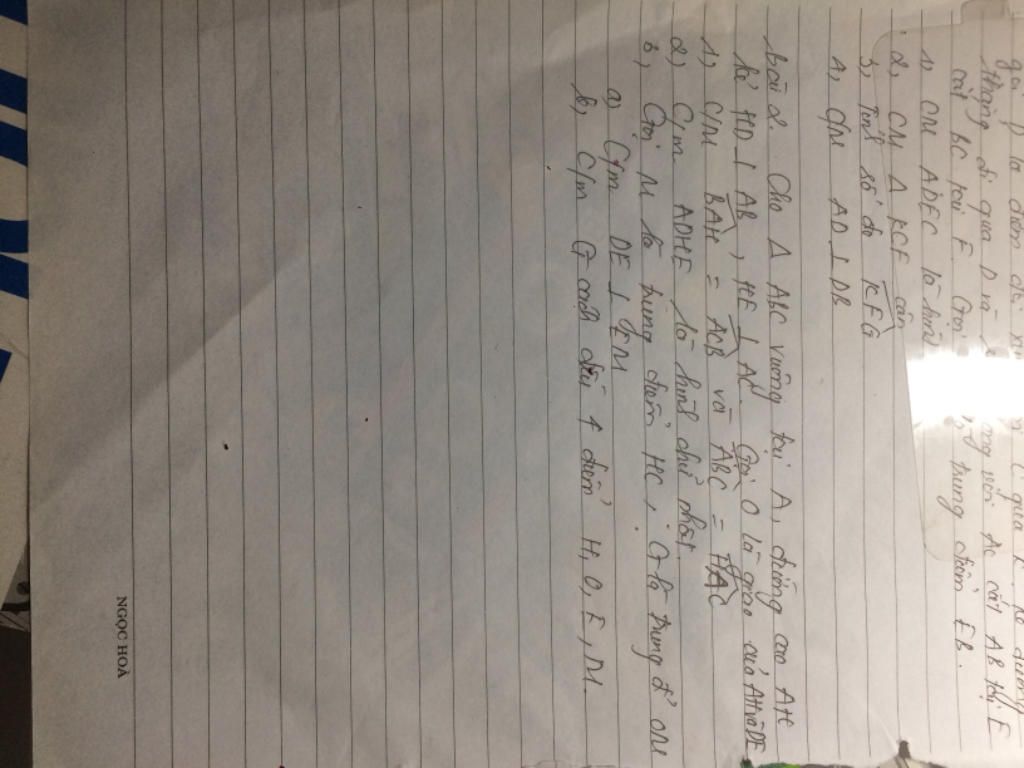 gọi D là điểm đ/x
thẳng đi qua D và song với AC cắt AB tại E
cắt BC tại F. Gọi trung điểm EB.
1, CM ADEC là hình
2, CM Δ KCF cân
3, Tính số đo KFG
4, CM AD ⊥ DB
bài 2. Cho Δ ABC vuông tại A, đường cao AH
kẻ HD ⊥ AB, HE ⊥ AC. Gọi O là giao của AH và DE
1, C/M BAH = ACB và ABC = HAC
2, C/m ADHE là hình chữ nhật.
3, Gọi M là trung điểm HC, G là trung đ' OM
a) C/m DE ⊥ EM
b, C/m G cách đều 4 điểm H, O, E, M.
NGỌC HOÀ